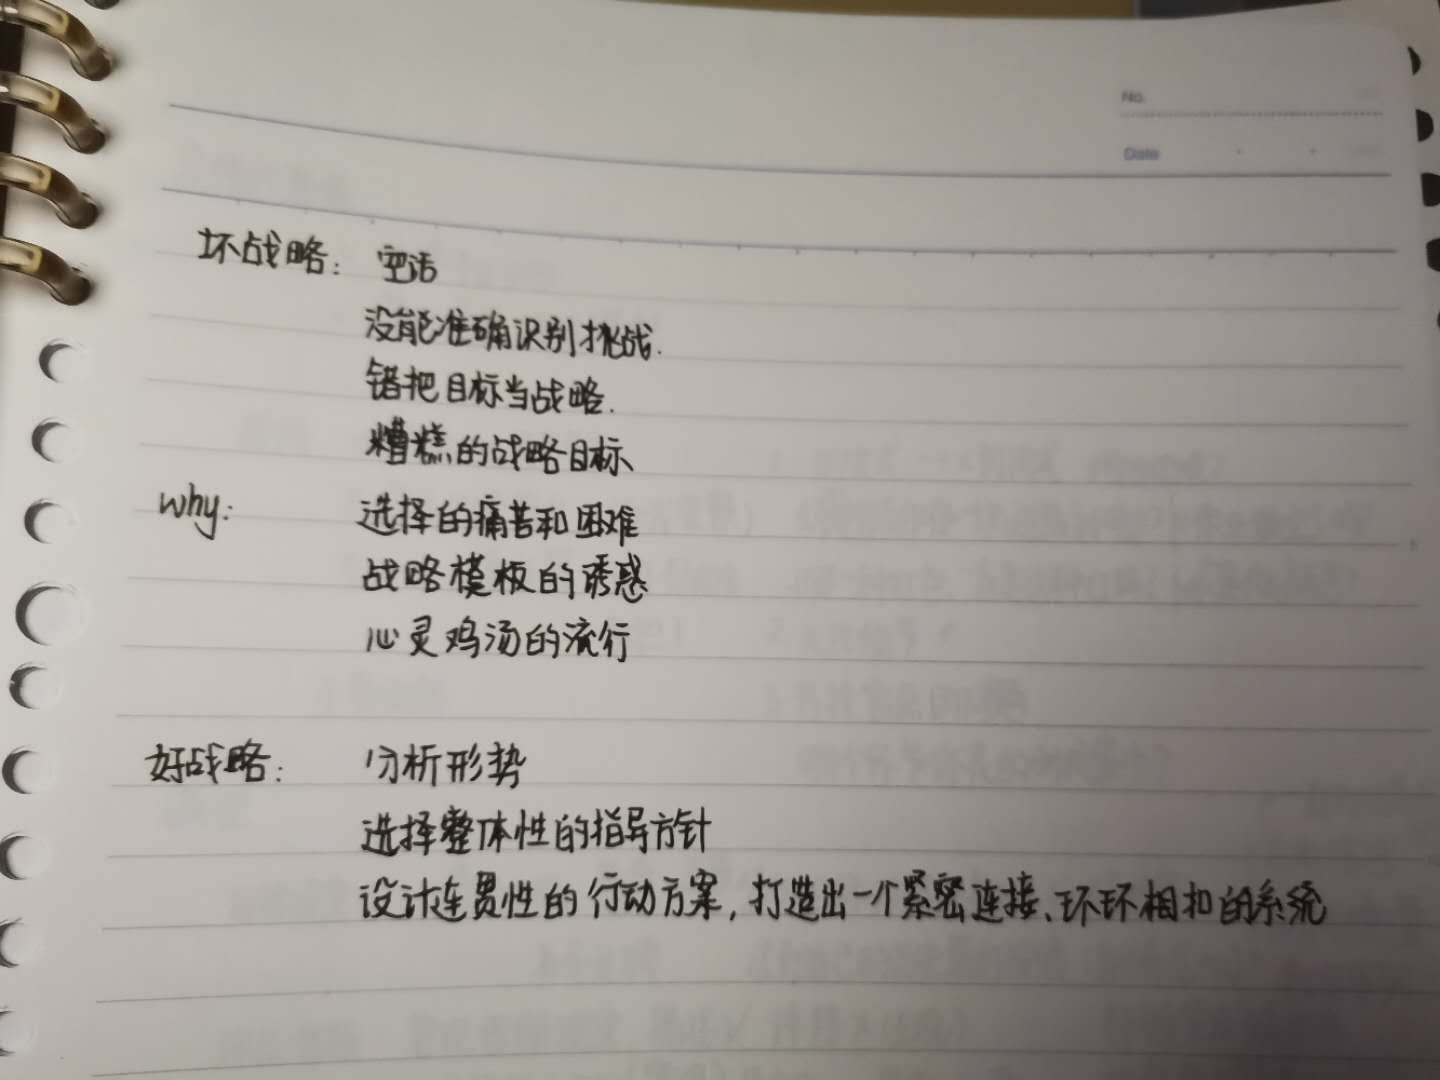 No.
Date
坏战略: 空话
没能准确识别挑战.
错把目标当战略.
糟糕的战略目标
why: 选择的痛苦和困难
战略模板的诱惑
心灵鸡汤的流行
好战略: 分析形势
选择整体性的指导方针
设计连贯性的行动方案,打造出一个紧密连接、环环相扣的系统